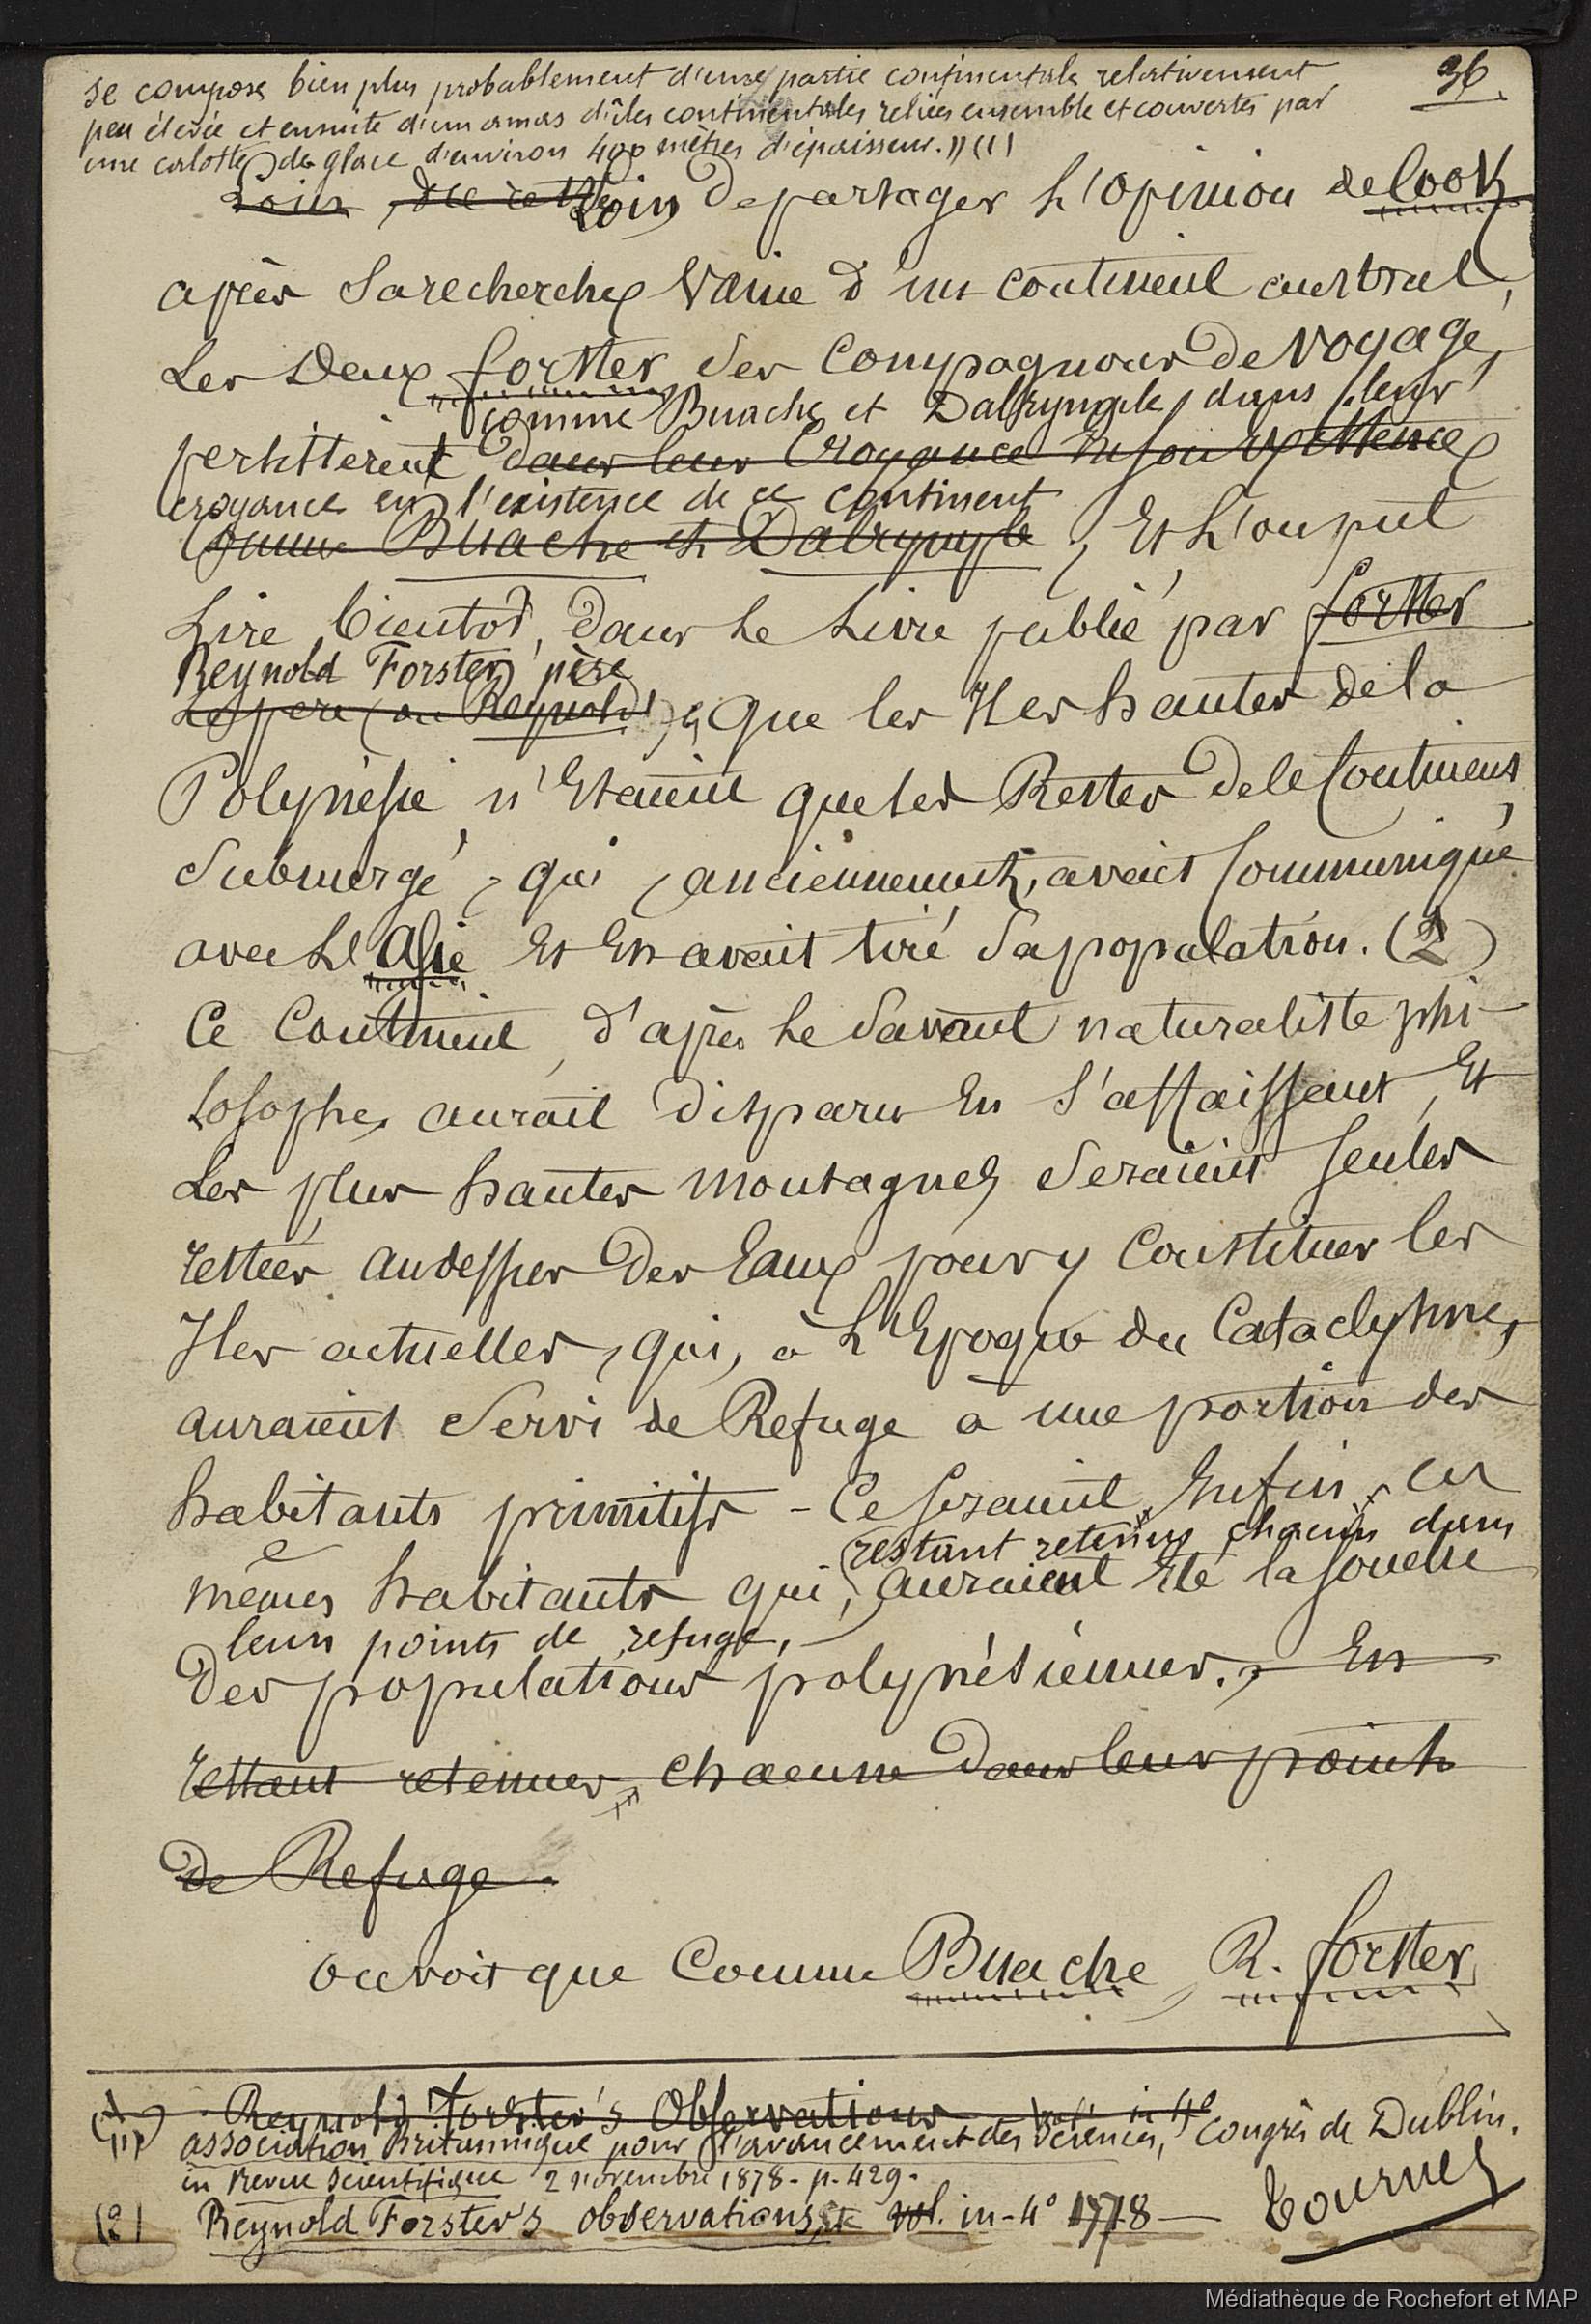 se compose bien plus probablement d'une partie continentale relativement
36.
peu élevée et ensuite d'un amas d'îles continentales reliées ensemble et couvertes par
une calotte de glace d'environ 400 mètres d'épaisseur. » (1)
Loin Loin de partager l'opinion de Cook
après sa recherche vaine d'un continent austral,
les deux forster ses compagnons de voyage,
comme Buache et Dalrymple, dans leur
persistèrent dans leur croyance en son existence
croyance en l'existence de ce continent
comme Buache et Dalrymple, Et l'on put
lire bientot, dans le livre publié par forster
Reynold Forster père
le père (ou Reynold), que les Iles hautes de la
Polynésie n'Etaient que les Restes de ce Continent
submergé, qui, anciennement, avait Communiqué
avec l'Asie Et En avait tiré sa population. (2)
Ce Continent, d'après le savant naturaliste phi-
losophe, aurait disparu En s'affaissant, Et
les plus hautes montagnes seraient seules
restées audessus des Eaux pour y Constituer les
Iles actuelles, qui, à l'Epoque du Cataclysme,
auraient servi de Refuge à une portion des
habitants primitifs - Ce seraient Enfin ces
restant retenus chacun dans
mêmes habitants qui, auraient été la souche
leurs points de refuge,
des populations polynésiennes. En
restant retenues chacune dans leur point
de Refuge.
on voit que Comme Buache, R. forster
(1) Reynold Forster's Observations vol. in 4°
association Britannique pour l'avancement des sciences, Congrès de Dublin.
in Revue Scientifique 2 novembre 1878 - p. 429.
(2) Reynold Forster's observations, vol. in-4° 1778 — tournez
Médiathèque de Rochefort et MAP